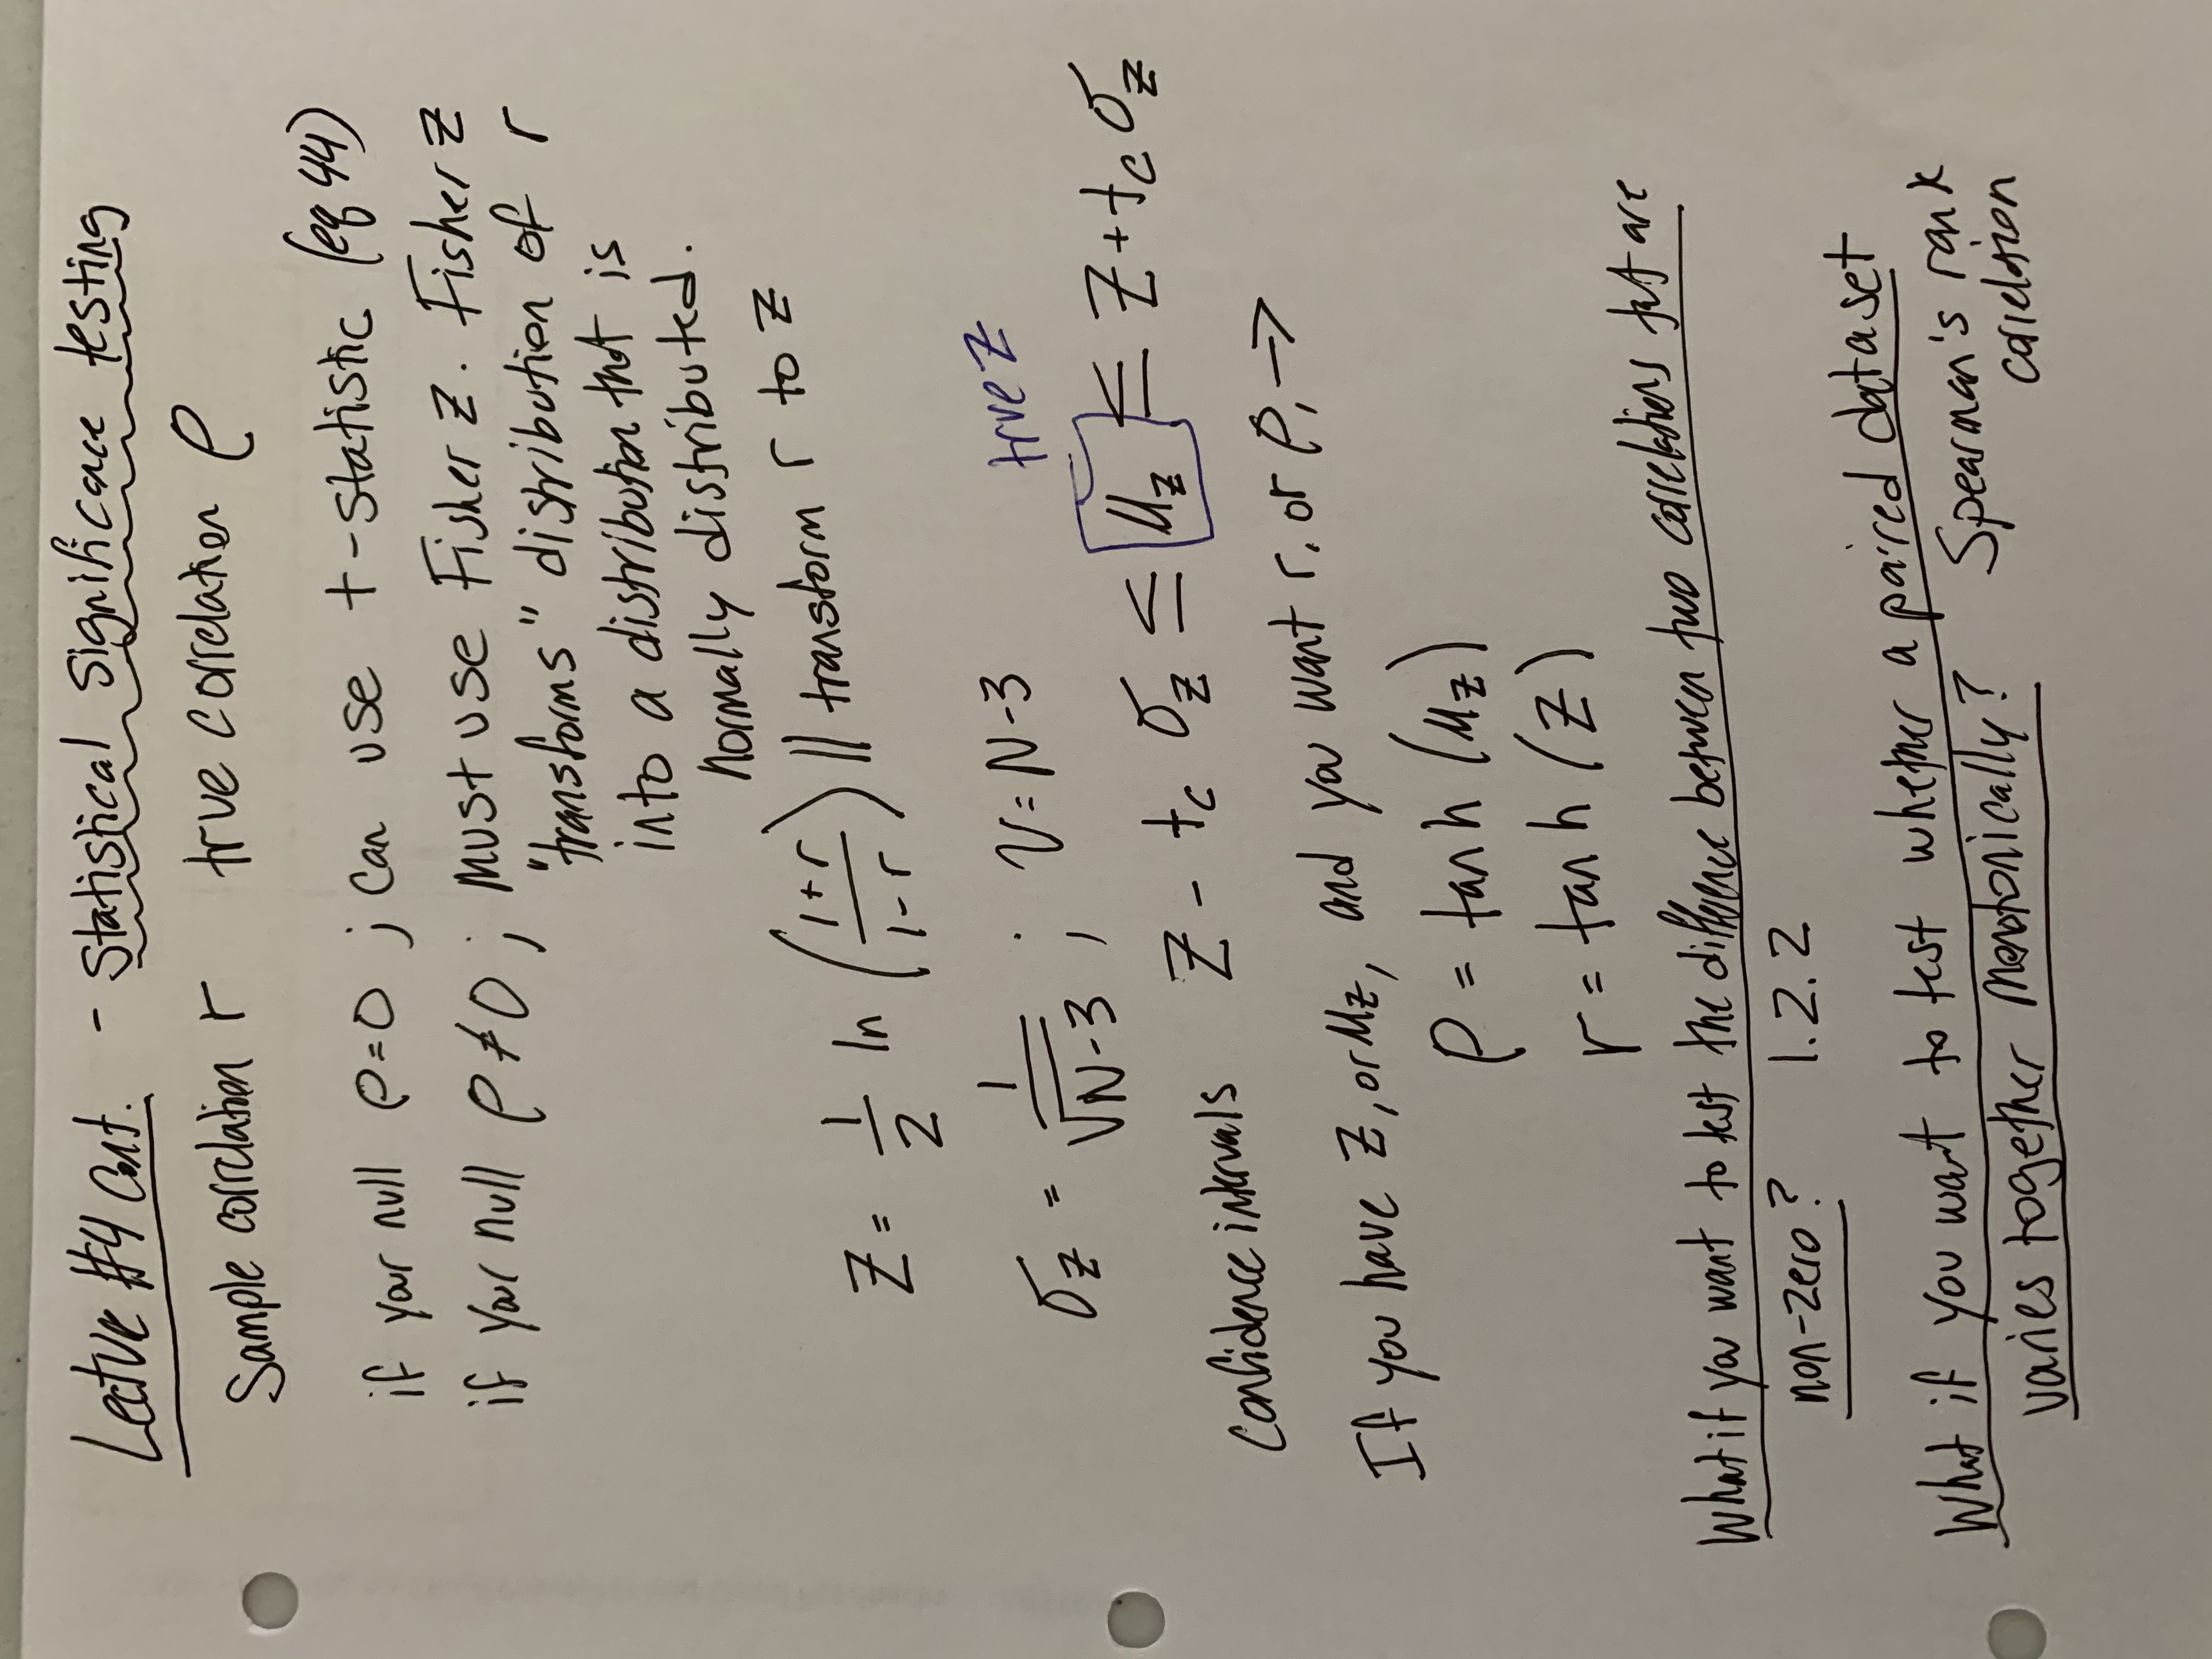 Lectue #4 Cont. - Statistical Significance testing
Sample correlation r true correlation ρ
if your null ρ=0 ; Can use t-statistic (eq 44)
if your null ρ≠0 ; must use Fisher Z. Fisher Z
"transforms" distribution of r
into a distribution that is
normally distributed.
Z = 1/2 ln ((1+r)/(1-r)) || transform r to Z
σ_Z = 1/√(N-3) ; ν = N-3
true Z
Confidence intervals Z - t_c σ_Z ≤ μ_Z ≤ Z + t_c σ_Z
If you have Z, or μ_Z, and you want r, or ρ, →
ρ = tanh (μ_Z)
r = tanh (Z)
What if you want to test the difference between two correlations that are
non-zero? 1.2.2
What if you want to test whether a paired dataset
varies together monotonically? Spearman's rank
correlation